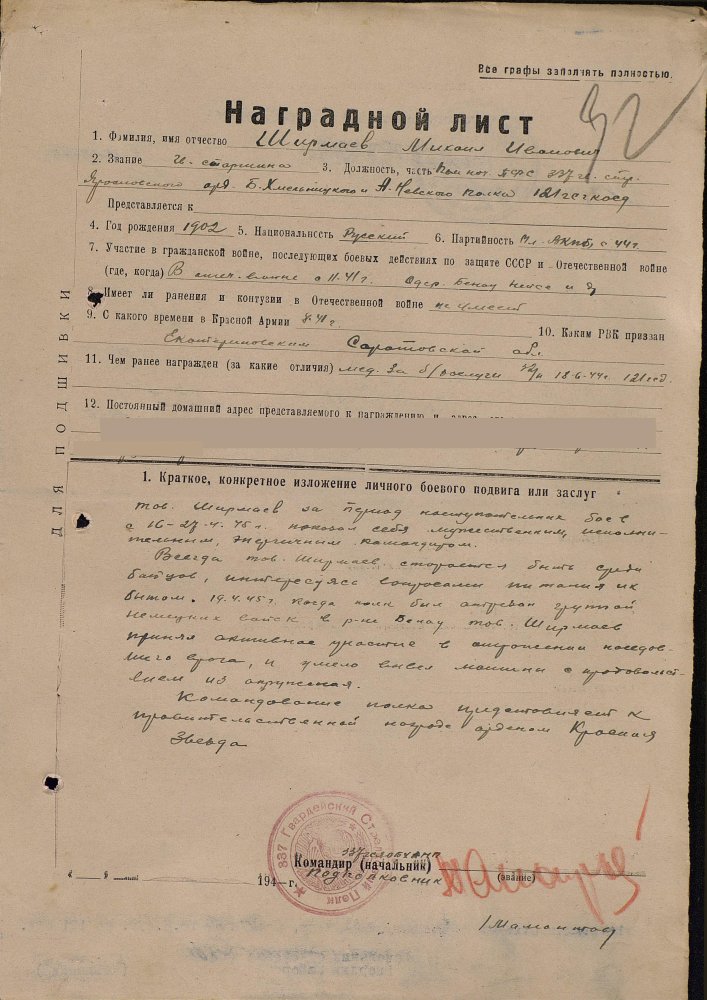 Все графы заполнять полностью.
32
Наградной лист
1. Фамилия, имя отчество Ширмаев Михаил Иванович
2. Звание гв. старшина 3. Должность, часть Пом нач. ПФС 337 гв. стр.
Ярославского орд. Б. Хмельницкого и А. Невского полка 121 гсгкоед
Представляется к
4. Год рождения 1902 5. Национальность Русский 6. Партийность чл. ВКПб с 44 г.
7. Участие в гражданской войне, последующих боевых действиях по защите СССР и Отечественной войне
(где, когда) В отеч. войне с 11-41 г.
8. Имеет ли ранения и контузии в Отечественной войне не имеет
9. С какого времени в Красной Армии 8-41 г. 10. Каким РВК призван
Екатериновским Саратовской обл
11. Чем ранее награжден (за какие отличия) мед. За б/заслуги 18-6-44 г. 121 гсд
12. Постоянный домашний адрес представляемого к награждению и адрес
ДЛЯ ПОДШИВКИ
1. Краткое, конкретное изложение личного боевого подвига или заслуг
тов. Ширмаев за период наступательных боев
с 16-27.4.45 г. показал себя мужественным, исполни-
тельным, энергичным командиром.
Всегда тов. Ширмаев старается быть среди
бойцов, интересуясь вопросами питания их
бытом. 19.4.45 г. когда полк был отрезан группой
немецких войск в р-не Бенау тов. Ширмаев
принял активное участие в отражении наседав-
шего врага, и умело вывел машины с продовольст-
вием из окружения.
Командование полка представляет к
правительственной награде орденом Красная
Звезда
337 Гвардейский Стрелковый Полк
Командир (начальник)
Подполковник
(звание)
194 г.
/Мамонтов/